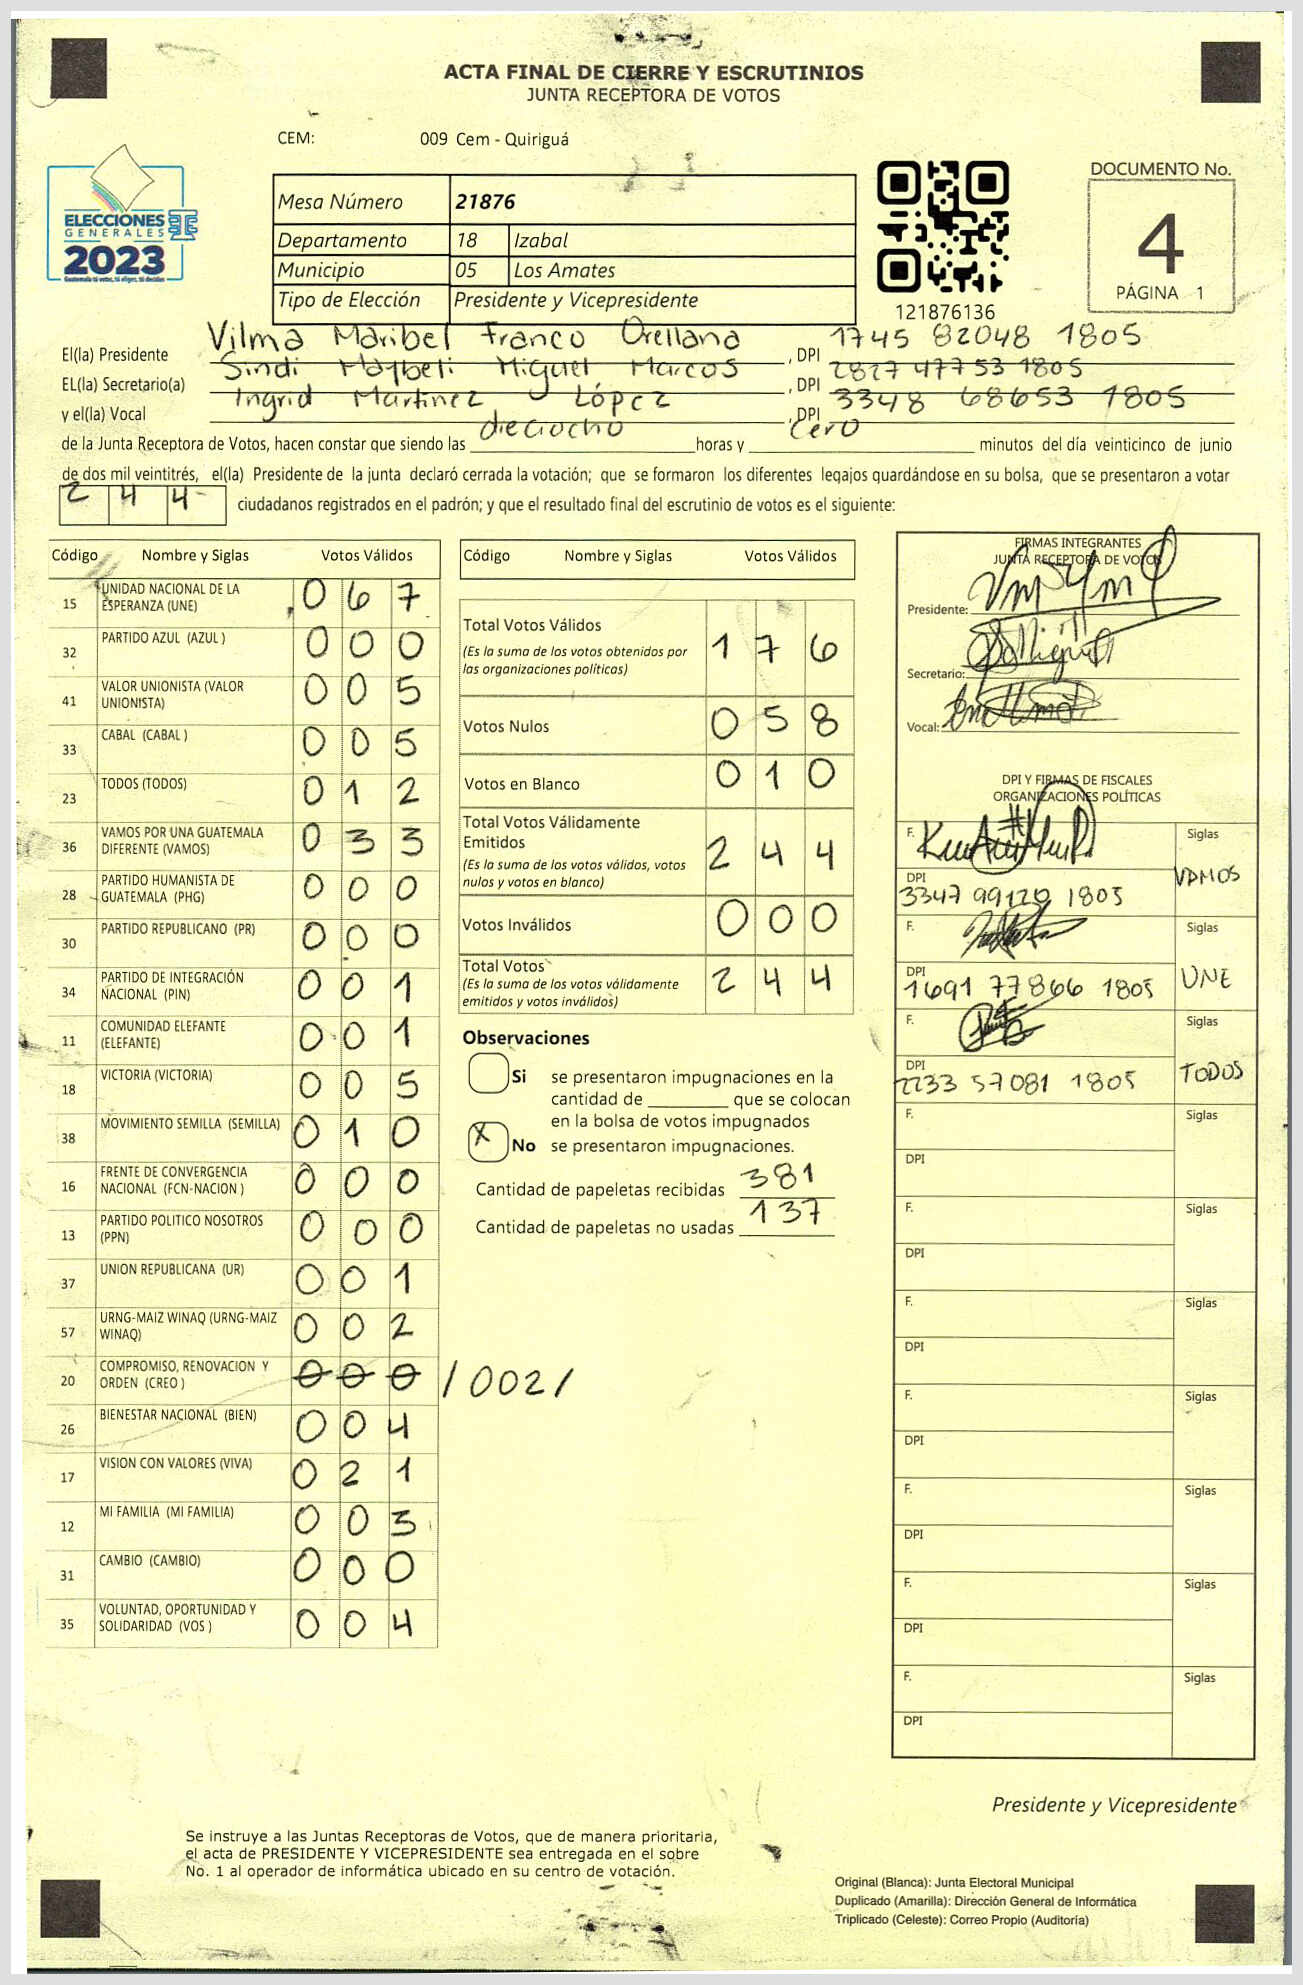 ACTA FINAL DE CIERRE Y ESCRUTINIOS
JUNTA RECEPTORA DE VOTOS
CEM: 009 Cem - Quiriguá
ELECCIONES
GENERALES
2023
Guatemala tú votas, tú eliges, tú decides
Mesa Número 21876
Departamento 18 Izabal
Municipio 05 Los Amates
Tipo de Elección Presidente y Vicepresidente
121876136
DOCUMENTO No.
4
PÁGINA 1
El(la) Presidente Vilma Maribel Franco Orellana, DPI 1745 82048 1805
EL(la) Secretario(a) Sindi Maybeli Miguel Marcos, DPI 2827 47753 1805
y el(la) Vocal Ingrid Martinez y López, DPI 3348 68653 1805
de la Junta Receptora de Votos, hacen constar que siendo las dieciocho horas y cero minutos del día veinticinco de junio
de dos mil veintitrés, el(la) Presidente de la junta declaró cerrada la votación; que se formaron los diferentes legajos guardándose en su bolsa, que se presentaron a votar
244 ciudadanos registrados en el padrón; y que el resultado final del escrutinio de votos es el siguiente:
Código Nombre y Siglas Votos Válidos
15 UNIDAD NACIONAL DE LA ESPERANZA (UNE) 0 6 7
32 PARTIDO AZUL (AZUL ) 0 0 0
41 VALOR UNIONISTA (VALOR UNIONISTA) 0 0 5
33 CABAL (CABAL ) 0 0 5
23 TODOS (TODOS) 0 1 2
36 VAMOS POR UNA GUATEMALA DIFERENTE (VAMOS) 0 3 3
28 PARTIDO HUMANISTA DE GUATEMALA (PHG) 0 0 0
30 PARTIDO REPUBLICANO (PR) 0 0 0
34 PARTIDO DE INTEGRACIÓN NACIONAL (PIN) 0 0 1
11 COMUNIDAD ELEFANTE (ELEFANTE) 0 0 1
18 VICTORIA (VICTORIA) 0 0 5
38 MOVIMIENTO SEMILLA (SEMILLA) 0 1 0
16 FRENTE DE CONVERGENCIA NACIONAL (FCN-NACION ) 0 0 0
13 PARTIDO POLITICO NOSOTROS (PPN) 0 0 0
37 UNION REPUBLICANA (UR) 0 0 1
57 URNG-MAIZ WINAQ (URNG-MAIZ WINAQ) 0 0 2
20 COMPROMISO, RENOVACION Y ORDEN (CREO ) 0 0 0 /002/
26 BIENESTAR NACIONAL (BIEN) 0 0 4
17 VISION CON VALORES (VIVA) 0 2 1
12 MI FAMILIA (MI FAMILIA) 0 0 3
31 CAMBIO (CAMBIO) 0 0 0
35 VOLUNTAD, OPORTUNIDAD Y SOLIDARIDAD (VOS ) 0 0 4
Código Nombre y Siglas Votos Válidos
Total Votos Válidos 1 7 6
(Es la suma de los votos obtenidos por
las organizaciones políticas)
Votos Nulos 0 5 8
Votos en Blanco 0 1 0
Total Votos Válidamente
Emitidos 2 4 4
(Es la suma de los votos válidos, votos
nulos y votos en blanco)
Votos Inválidos 0 0 0
Total Votos 2 4 4
(Es la suma de los votos válidamente
emitidos y votos inválidos)
Observaciones
Si se presentaron impugnaciones en la
cantidad de ________ que se colocan
en la bolsa de votos impugnados
X No se presentaron impugnaciones.
Cantidad de papeletas recibidas 381
Cantidad de papeletas no usadas 137
FIRMAS INTEGRANTES
JUNTA RECEPTORA DE VOTOS
Presidente:
Secretario:
Vocal:
DPI Y FIRMAS DE FISCALES
ORGANIZACIONES POLÍTICAS
F. Siglas
DPI 3347 99120 1805 VAMOS
F. Siglas
DPI 1691 77866 1805 UNE
F. Siglas
DPI 2233 57081 1805 TODOS
F. Siglas
DPI
F. Siglas
DPI
F. Siglas
DPI
F. Siglas
DPI
F. Siglas
DPI
F. Siglas
DPI
F. Siglas
DPI
Presidente y Vicepresidente
Se instruye a las Juntas Receptoras de Votos, que de manera prioritaria,
el acta de PRESIDENTE Y VICEPRESIDENTE sea entregada en el sobre
No. 1 al operador de informática ubicado en su centro de votación.
Original (Blanca): Junta Electoral Municipal
Duplicado (Amarilla): Dirección General de Informática
Triplicado (Celeste): Correo Propio (Auditoría)